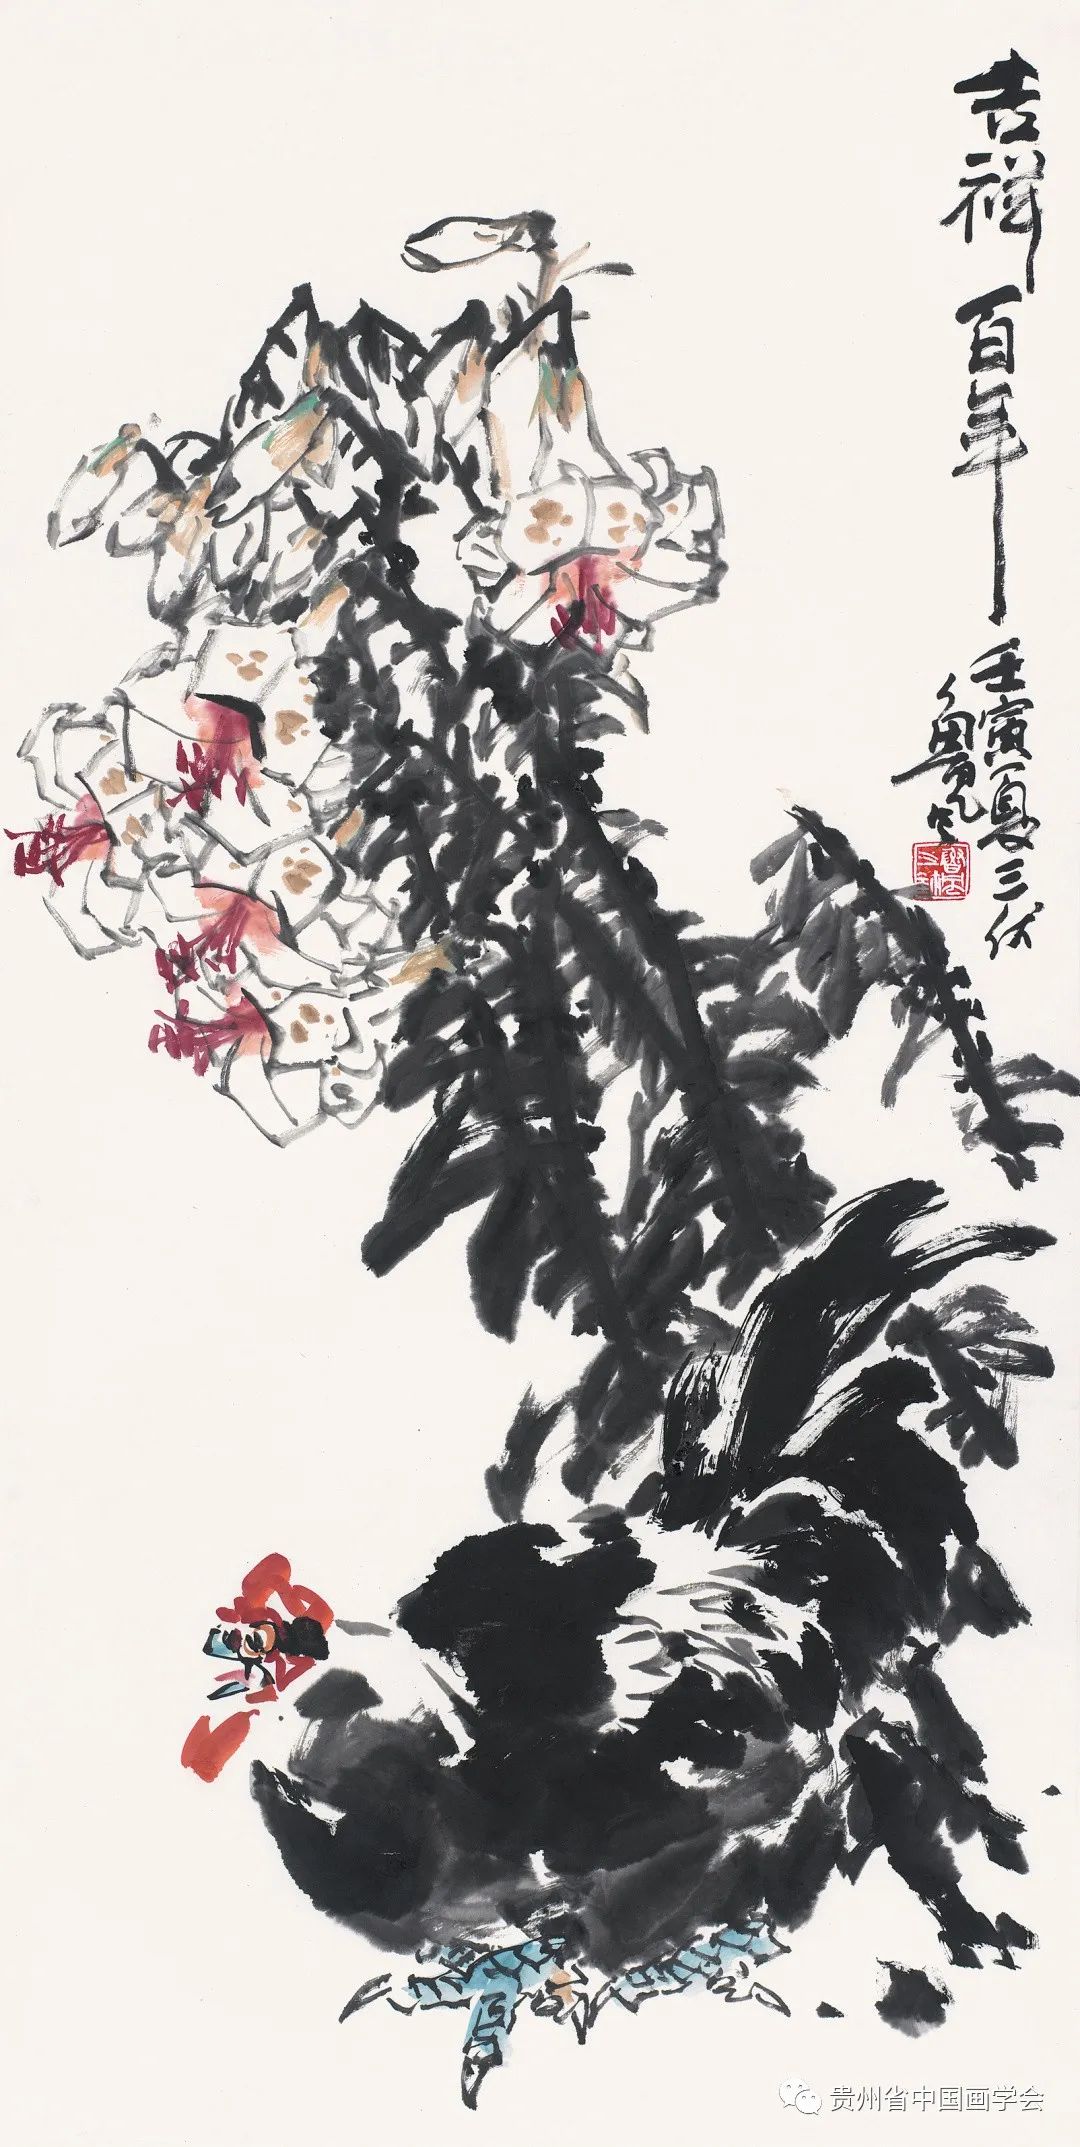 吉祥百年
壬寅夏三伏
鲁风
贵州省中国画学会